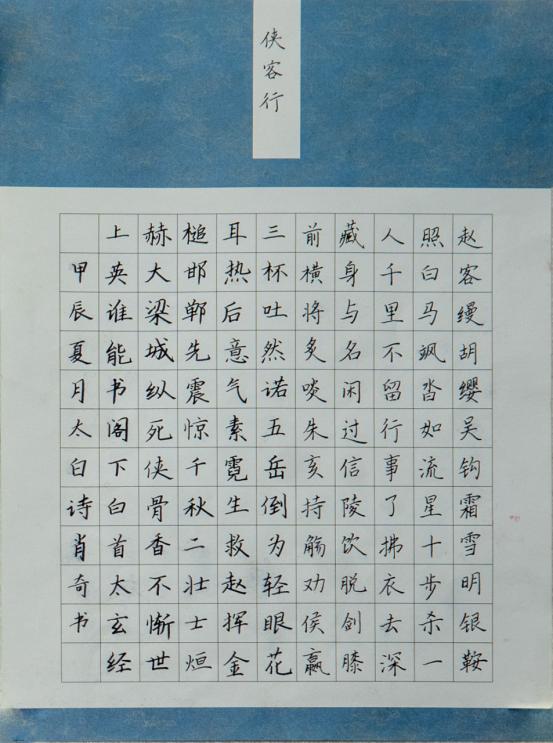 侠客行
赵客缦胡缨吴钩霜雪明银鞍
照白马飒沓如流星十步杀一
人千里不留行事了拂衣去深
藏身与名闲过信陵饮脱剑膝
前横将炙啖朱亥持觞劝侯嬴
三杯吐然诺五岳倒为轻眼花
耳热后意气素霓生救赵挥金
槌邯郸先震惊千秋二壮士烜
赫大梁城纵死侠骨香不惭世
上英谁能书阁下白首太玄经
甲辰夏月太白诗肖奇书